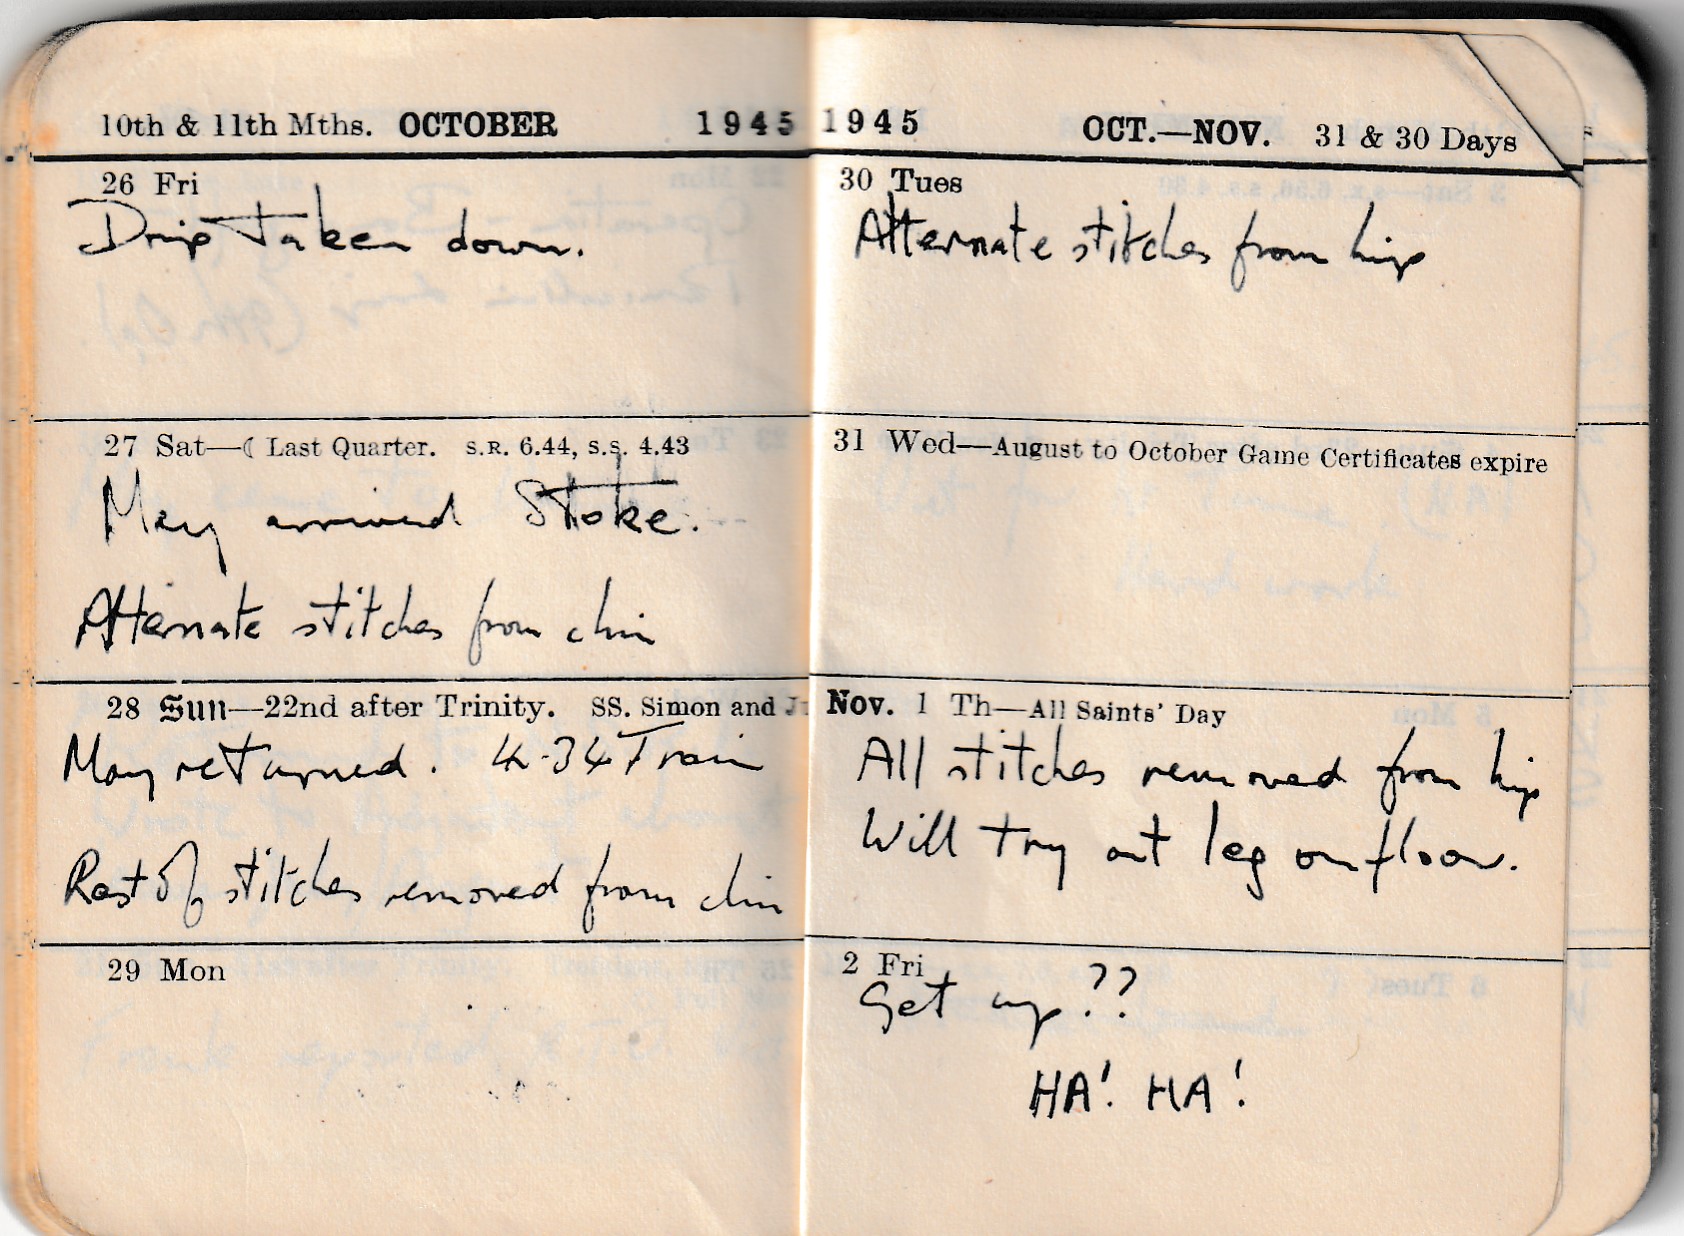 10th & 11th Mths. OCTOBER 1945
26 Fri
Drip taken down.
27 Sat—☾ Last Quarter. S.R. 6.44, S.S. 4.43
May arrived Stoke.
Alternate stitches from chin
28 Sun—22nd after Trinity. SS. Simon and
May returned. 4.34 Train
Rest of stitches removed from chin
29 Mon
1945 OCT.—NOV. 31 & 30 Days
30 Tues
Alternate stitches from hip
31 Wed—August to October Game Certificates expire
Nov. 1 Th—All Saints' Day
All stitches removed from hip
Will try out leg on floor.
2 Fri
Get up??
HA! HA!